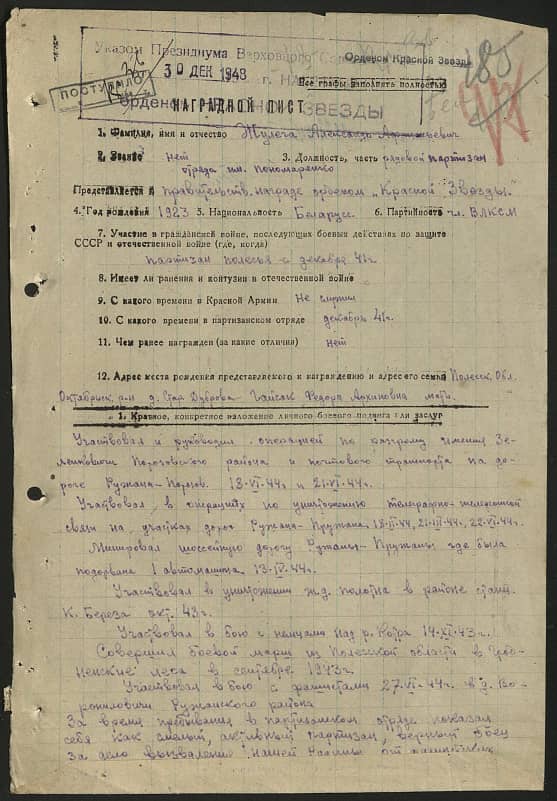 Указом Президиума Верховного
Орденом Красной Звезды
30 ДЕК 1948
г. НА
Все графы заполнять полностью
ПОСТУПИЛО
185
орден
ЗВЕЗДЫ
НАГРАДНОЙ ЛИСТ
1. Фамилия, имя и отчество Жулега Александр
2. Звание нет 3. Должность, часть рядовой партизан
отряда им. Пономаренко
Представляется к правительств. награде орденом „Красной Звезды“
4. Год рождения 1923 5. Национальность Беларусс 6. Партийность чл. ВЛКСМ
7. Участие в гражданской войне, последующих боевых действиях по защите
СССР и отечественной войне (где, когда)
партизан полесья с декабря 41г
8. Имеет ли ранения и контузии в отечественной войне
9. С какого времени в Красной Армии Не служил
10. С какого времени в партизанском отряде декабрь 41г.
11. Чем ранее награжден (за какие отличия) нет
12. Адрес места рождения представляемого к награждению и адрес его семьи Полесск. Обл.
Октябрьск. р-н д. Стар Дуброва Федора Архиповна мать.
1. Краткое, конкретное изложение личного боевого подвига или заслуг
Участвовал и руководил операцией по разгрому имения
Порозовского района и почтового транспорта на до-
роге Ружана-Порозов. 18-VI-44г и 21-VI-44г.
Участвовал в операциях по уничтожению телеграфно-телефонной
связи на участках дорог Ружана-Пружана, 21
Минировал шоссейную дорогу Ружаны-Пружаны где была
подорвана 1 автомашина 13
Участвовал в уничтожении ж.д. полотна в районе стант.
К. Береза окт. 43г.
Участвовал в бою с немцами над р. 14-XI-43г.
Совершил боевой марш из Полесской области в
ненские леса в сентябре 1943г.
Участвовал в бою с фашистами 27-VI-44г в д. Во-
рошиловичи Ружанского района
За время пребывания в партизанском отряде показал
себя как смелый, активный партизан, верный боец
За дело вызваления нашей Радзимы от фашистских